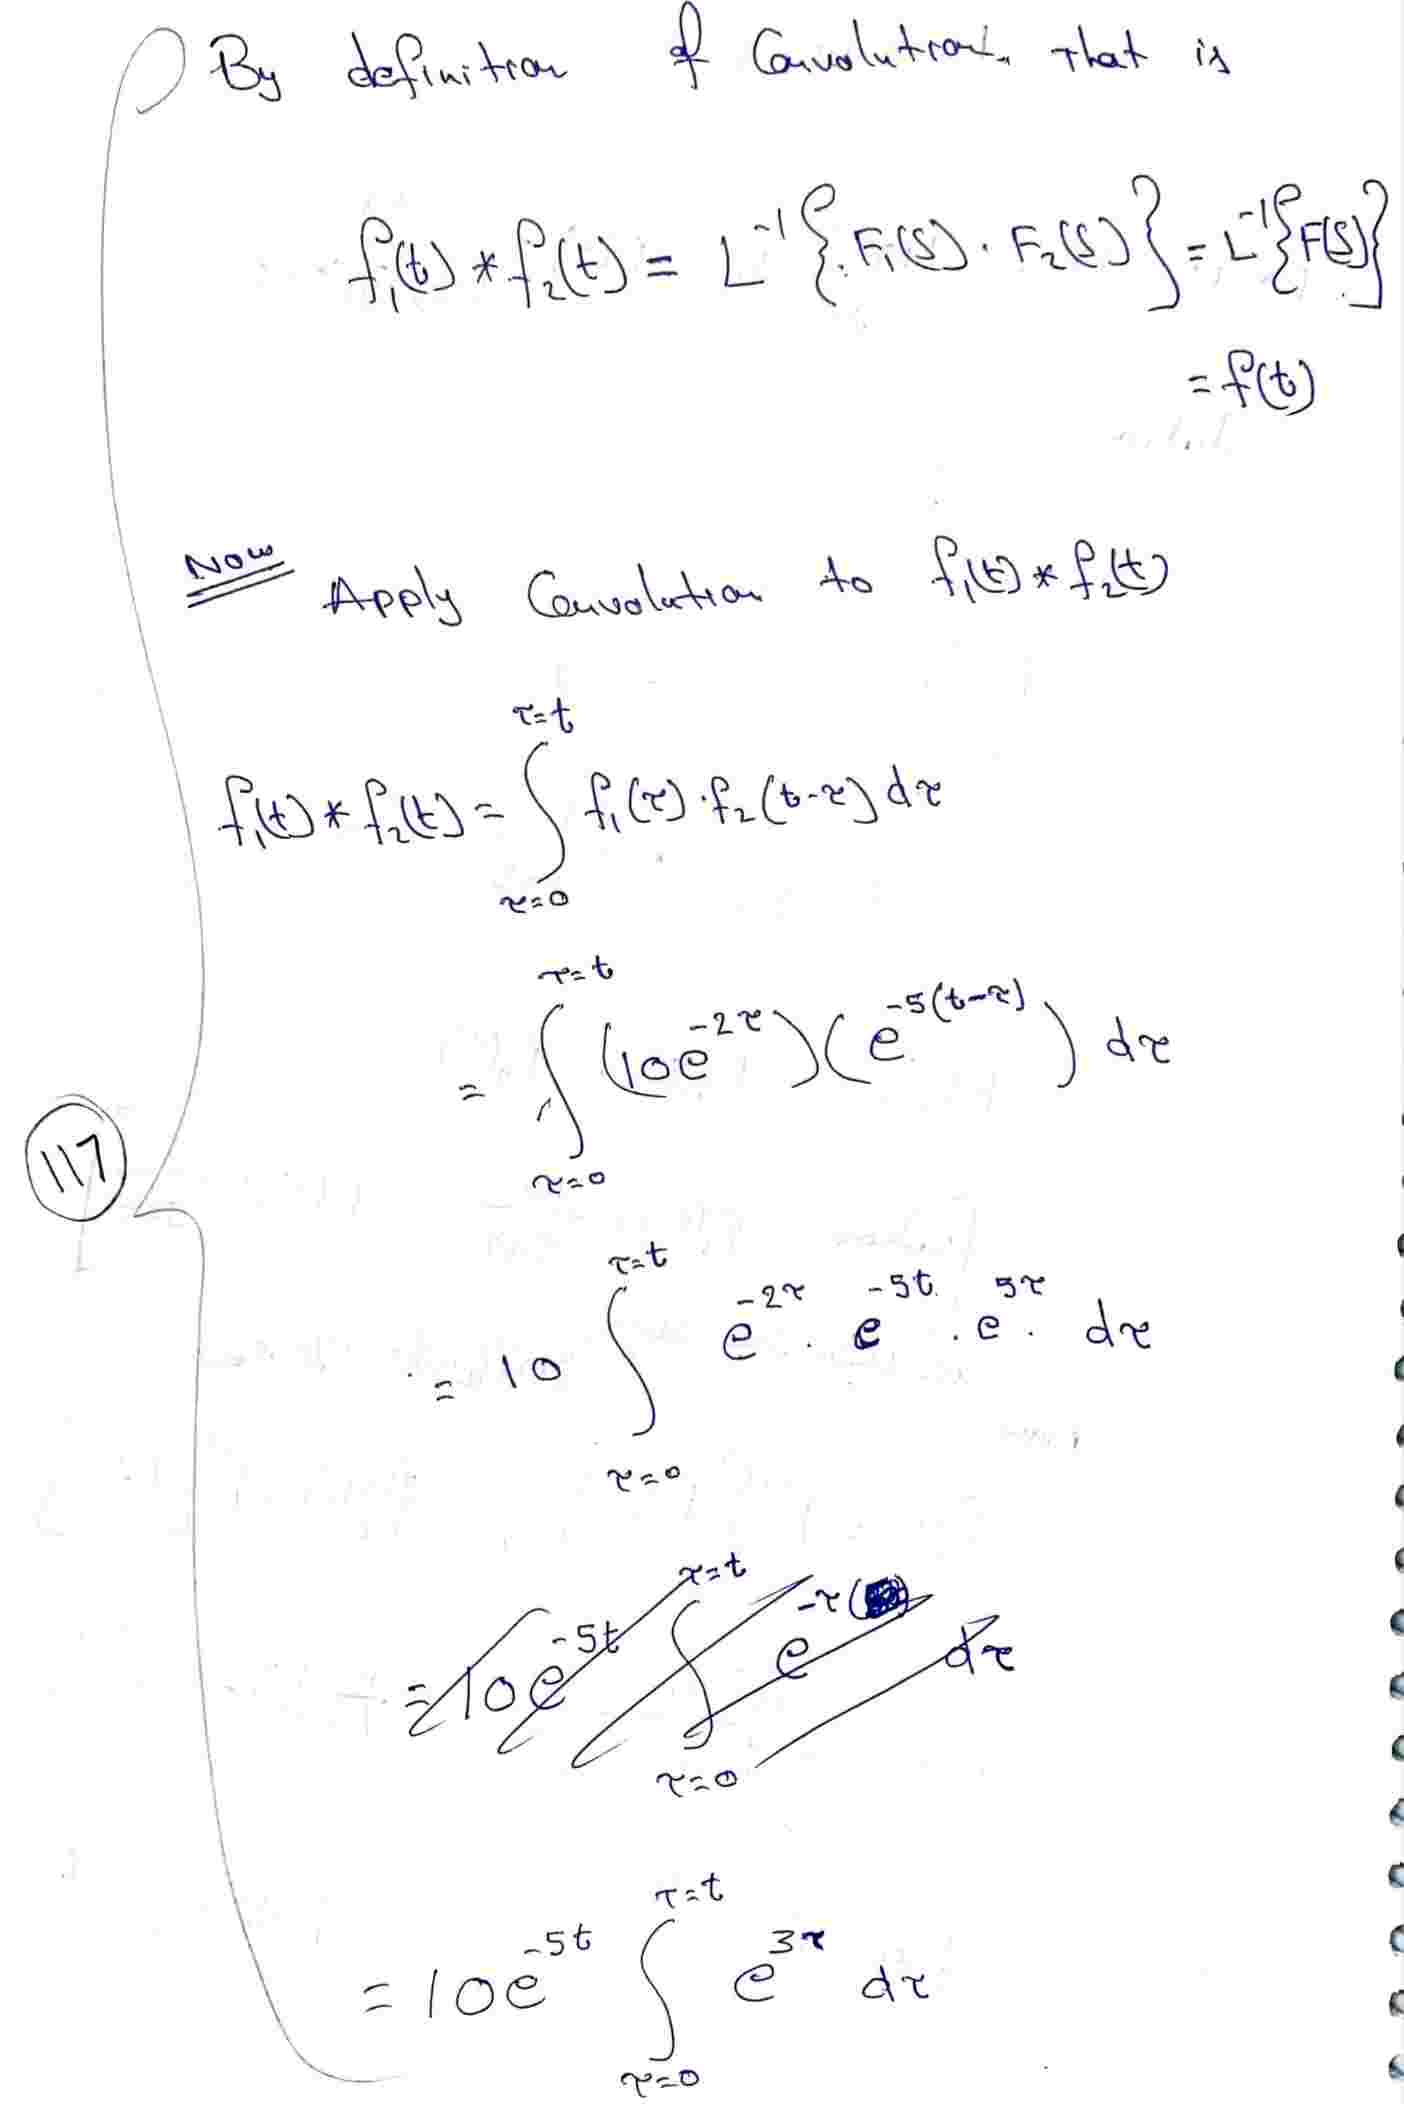 By definition of Convolution. That is
f₁(t) * f₂(t) = L⁻¹{F₁(S) · F₂(S)} = L⁻¹{F(S)}
= f(t)
Now Apply Convolution to f₁(t) * f₂(t)
τ=t
f₁(t) * f₂(t) = ∫ f₁(τ) · f₂(t-τ) dτ
τ=0
τ=t
= ∫ (10e^{-2τ})(e^{-5(t-τ)}) dτ
τ=0
117
τ=t
= 10 ∫ e^{-2τ} · e^{-5t} · e^{5τ} · dτ
τ=0
τ=t
= 10e^{-5t} ∫ e^{-τ(} dτ
τ=0
τ=t
= 10e^{-5t} ∫ e^{3τ} dτ
τ=0